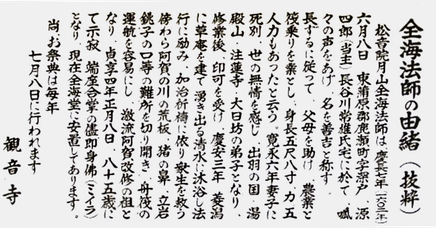 全海法師の由緒（抜粋）
松音院月山全海法師は、慶長七年（一六〇二年）
六月八日 東蒲原郡鹿瀬町字深戸 源
四郎（当主）長谷川常雄氏宅に於て 呱
々の声をあげ、名を善吉と称す。
長ずるに従って 父母を助け 農業と
筏乗りを業とし 身長五尺八寸 力 五
人力もあったと云う 寛永六年妻子に
死別 世の無情を感じ 出羽の国 湯
殿山 注蓮寺 大日坊の弟子となり、
修業後 印可を受け 慶安三年 菱潟
に草庵を建て 湧き出る清水に沐浴し法
行に励み 加治祈祷に依り衆生を救う
傍わら阿賀の川の荒坂 猪の鼻 立岩
銚子の口等の難所を切り開き、舟筏の
運航を容易にし、激流阿賀改修の祖と
なり 貞享四年正月八日 八十五歳に
て示寂 端座合掌の儘即身佛（ミイラ）
となり、現在全海堂に安置してあります。
尚、お祭典は毎年
七月八日に行われます
観音寺